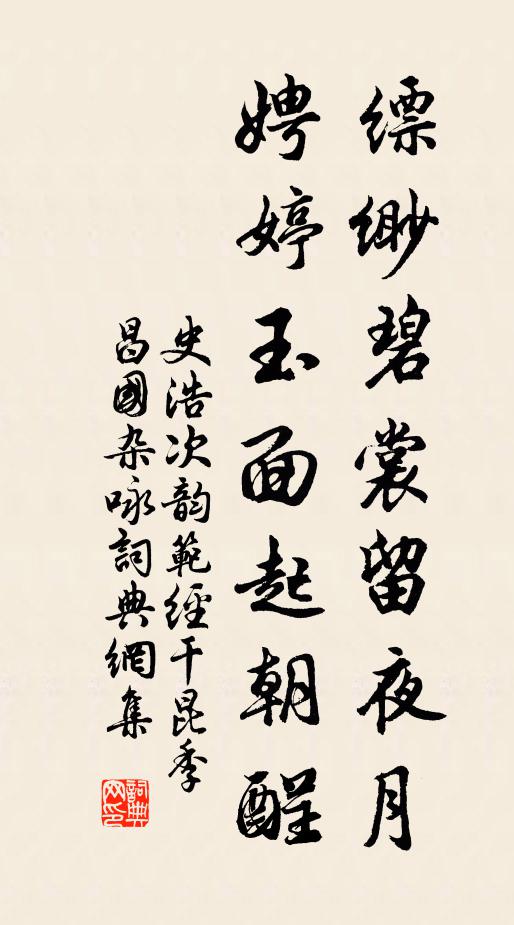 缥缈碧裳留夜月
娉婷玉面起朝酲
史浩次韵範經干昆季
昌國杂咏詞典網集
詞典网印